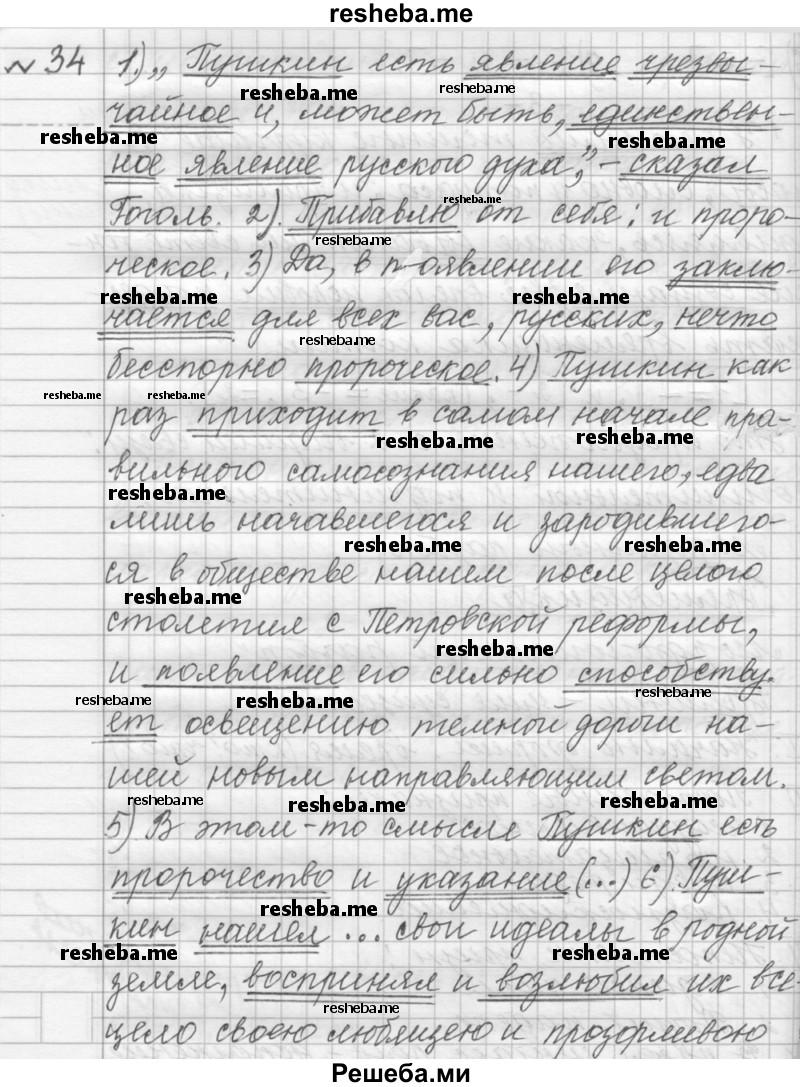 resheba.me
№34 1.) „Пушкин есть явление чрезвы-
чайное и, может быть, единствен-
ное явление русского духа,"- сказал
Гоголь. 2). Прибавлю от себя: и проро-
ческое. 3) Да, в появлении его заклю-
чается для всех вас, русских, нечто
бесспорно пророческое. 4) Пушкин как
раз приходит в самом начале пра-
вильного самосознания нашего, едва
лишь начавшегося и зародившего-
ся в обществе нашем после целого
столетия с Петровской реформы,
и появление его сильно способству-
ет освещению темной дороги на-
шей новым направляющим светом.
5) В этом-то смысле Пушкин есть
пророчество и указание (...) 6). Пуш-
кин нашел ... свои идеалы в родной
земле, воспринял и возлюбил их все-
цело своею любящею и прозорливою
Решеба.ми